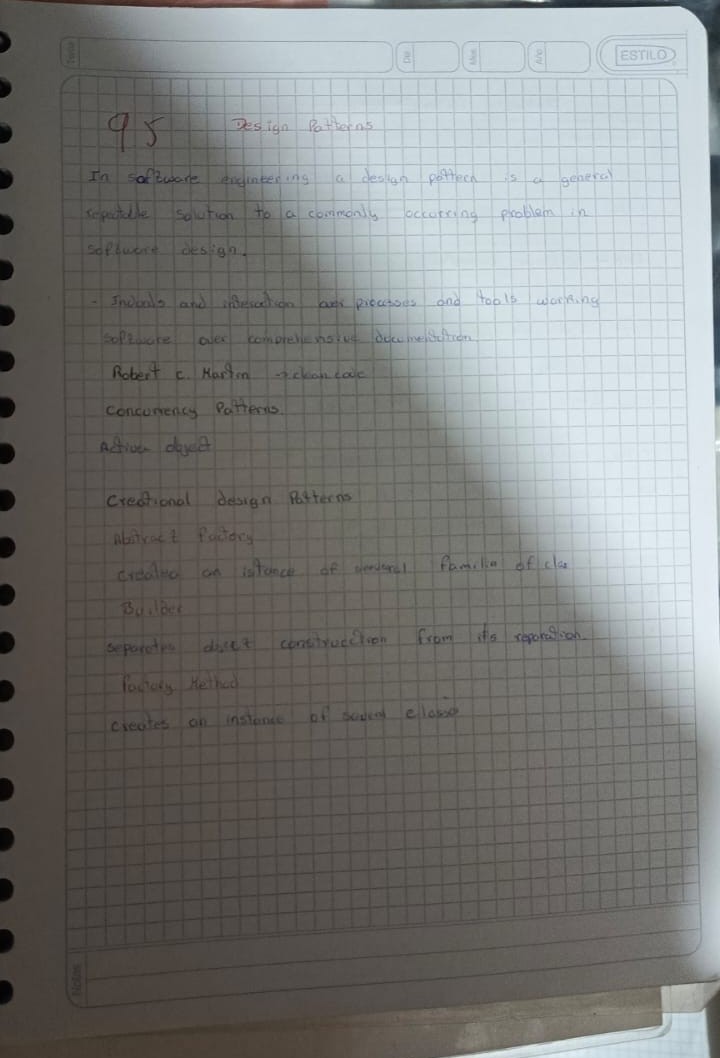 Tema
Día
Mes
Año
ESTILO
95 Design Patterns
In software engineering a design pattern is a general
solution to a commonly occurring problem in
software design.
- and over processes and tools working
software over comprehensive documentation
Robert C. Martin → clean code
Concurrency Patterns
Active object
Creational design Patterns
Abstract Factory
an istance of familia of clas
Builder
separates construcction from its
Factory Method
creates an instance of
Notas